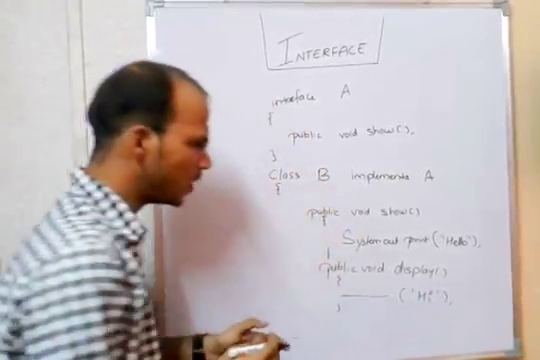 INTERFACE
interface A
{
public void show();
}
Class B implements A
{
public void show()
{
System.out.print("Hello");
}
public void display()
{
("Hi");
}